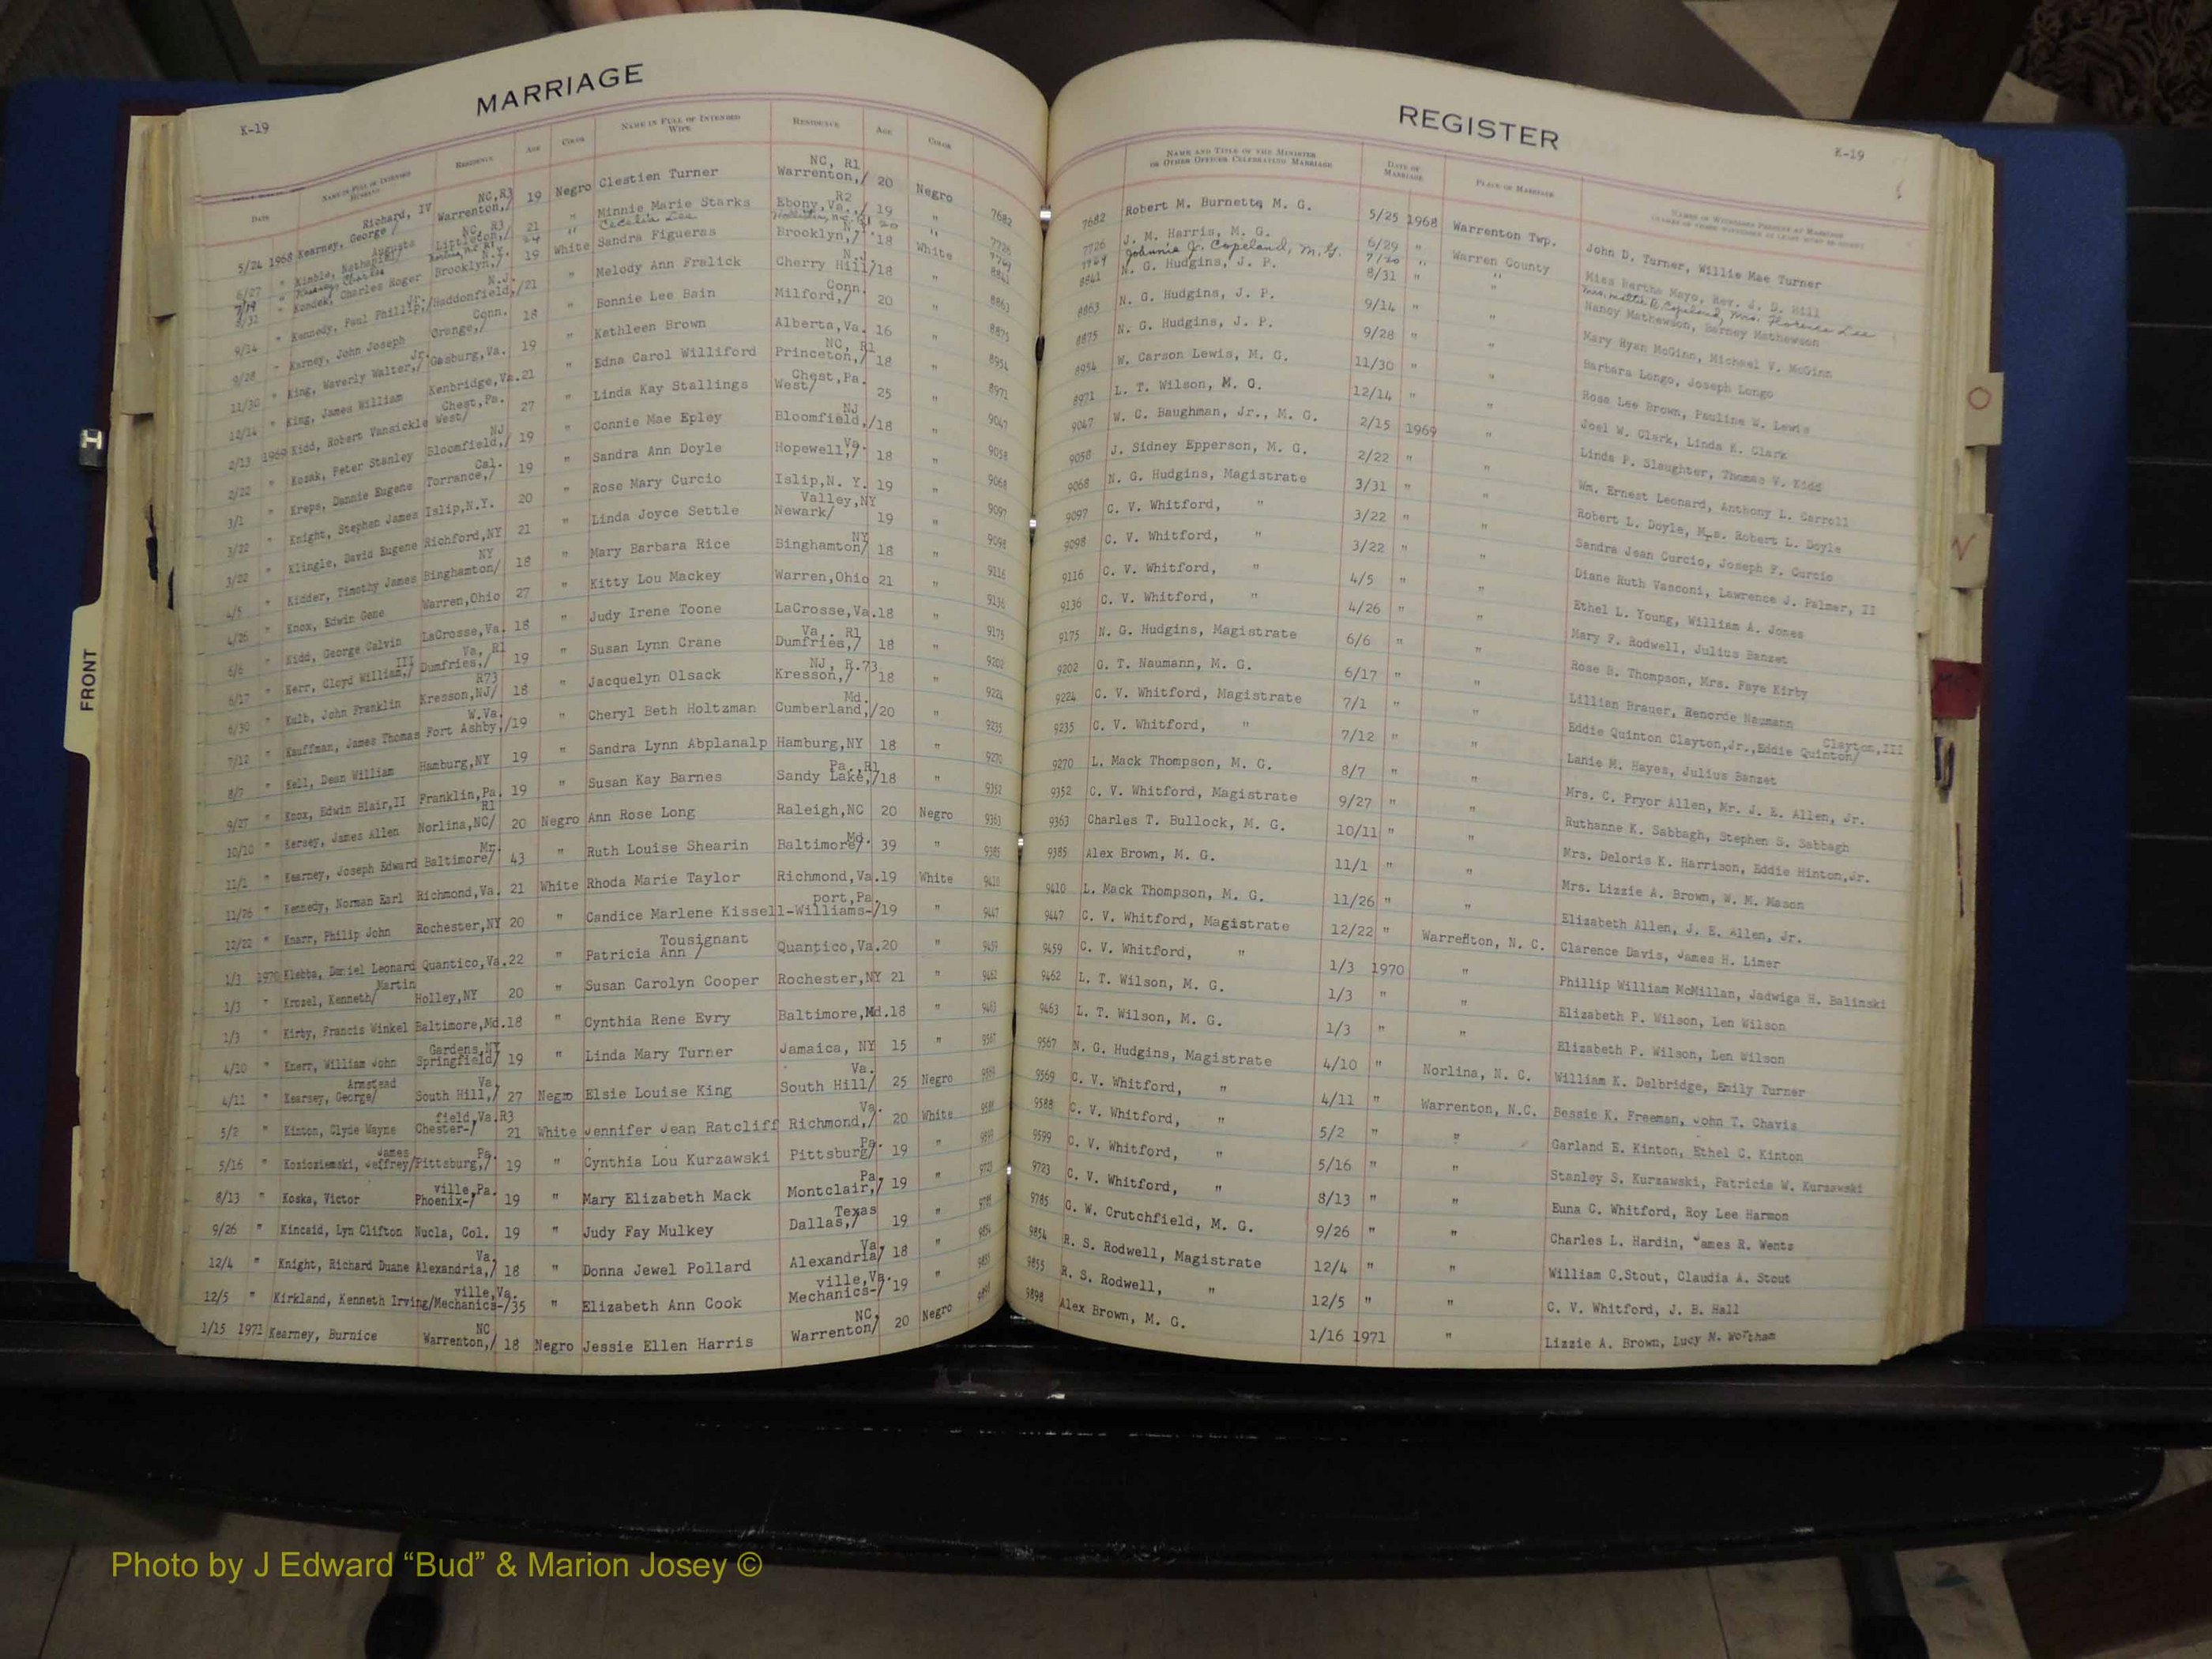 MARRIAGE
K-19
DATE NAME IN FULL OF INTENDED HUSBAND RESIDENCE AGE COLOR NAME IN FULL OF INTENDED WIFE RESIDENCE AGE COLOR
5/24 1968 Kearney, George/ Richard, IV Warrenton,/ NC,R3 19 Negro Clestien Turner Warrenton,/ NC, R1 20 Negro 7682
6/27 " Kimble, Nathaniel/ Augusta Littleton,/ NC, R3 21 " Minnie Marie Starks Ebony, Va.,/ R2 19 " 7726
7/19 " Charles 24 " Cecelia Lee 20 " 7769
" Kondek, Charles Roger Brooklyn,/ N.Y. 19 White Sandra Figueras Brooklyn,/ N.Y. 18 White 8841
9/14 " Kennedy, Paul Phillip,/ Jr. Haddonfield,/ N.J. 21 " Melody Ann Fralick Cherry Hill/ N.J. 18 " 8863
9/28 " Karney, John Joseph Orange,/ Conn. 18 " Bonnie Lee Bain Milford,/ Conn. 20 " 8875
11/30 " King, Waverly Walter,/ Jr. Gasburg,Va. 19 " Kathleen Brown Alberta,Va. 16 " 8954
12/14 " King, James William Kenbridge,Va. 21 " Edna Carol Williford Princeton,/ NC, R1 18 " 8971
2/13 1969 Kidd, Robert Vansickle West/ Chest,Pa. 27 " Linda Kay Stallings West/ Chest,Pa. 25 " 9047
2/22 " Kozak, Peter Stanley Bloomfield,/ NJ 19 " Connie Mae Epley Bloomfield,/ NJ 18 " 9058
3/1 " Kreps, Dannie Eugene Torrance,/ Cal. 19 " Sandra Ann Doyle Hopewell,/ Va. 18 " 9068
3/22 " Knight, Stephen James Islip,N.Y. 20 " Rose Mary Curcio Islip,N. Y. 19 " 9097
3/22 " Klingle, David Eugene Richford,NY 21 " Linda Joyce Settle Newark/ Valley,NY 19 " 9098
4/5 " Kidder, Timothy James Binghamton/ NY 18 " Mary Barbara Rice Binghamton/ NY 18 " 9116
4/26 " Knox, Edwin Gene Warren,Ohio 27 " Kitty Lou Mackey Warren,Ohio 21 " 9136
6/6 " Kidd, George Calvin LaCrosse,Va. 18 " Judy Irene Toone LaCrosse,Va. 18 " 9175
6/17 " Kerr, Cloyd William,/ III Dumfries,/ Va, R1 19 " Susan Lynn Crane Dumfries,/ Va., R1 18 " 9202
6/30 " Kulb, John Franklin Kresson,NJ/ R73 18 " Jacquelyn Olsack Kresson,/ NJ, R.73 18 " 9224
7/12 " Kauffman, James Thomas Fort Ashby,/ W.Va. 19 " Cheryl Beth Holtzman Cumberland,/ Md. 20 " 9235
8/7 " Kell, Dean William Hamburg,NY 19 " Sandra Lynn Abplanalp Hamburg,NY 18 " 9270
9/27 " Knox, Edwin Blair,II Franklin,Pa. 19 " Susan Kay Barnes Sandy Lake,/ Pa.,R1 18 " 9352
10/10 " Kersey, James Allen Norlina,NC/ R1 20 Negro Ann Rose Long Raleigh,NC 20 Negro 9363
11/1 " Kearney, Joseph Edward Baltimore/ 43 " Ruth Louise Shearin Baltimore/ Md. 39 " 9385
11/26 " Kennedy, Norman Earl Richmond,Va. 21 White Rhoda Marie Taylor Richmond,Va. 19 White 9410
12/22 " Knarr, Philip John Rochester,NY 20 " Candice Marlene Kissell-Williams-/ port,Pa. 19 " 9447
1/3 1970 Klebba, Daniel Leonard Quantico,Va. 22 " Patricia Ann / Tousignant Quantico,Va. 20 " 9459
1/3 " Krozel, Kenneth/ Martin Holley,NY 20 " Susan Carolyn Cooper Rochester,NY 21 " 9462
1/3 " Kirby, Francis Winkel Baltimore,Md. 18 " Cynthia Rene Evry Baltimore,Md. 18 " 9463
4/10 " Knerr, William John Springfield/ Gardens,NY 19 " Linda Mary Turner Jamaica, NY 15 " 9567
4/11 " Kearsey, George/ Armstead South Hill,/ Va. 27 Negro Elsie Louise King South Hill/ Va. 25 Negro 9569
5/2 " Kinton, Clyde Wayne Chester-/ field,Va.R3 21 White Jennifer Jean Ratcliff Richmond,/ Va. 20 White 9588
5/16 " Kozioziemski, Jeffrey/ James Pittsburg,/ Pa. 19 " Cynthia Lou Kurzawski Pittsburg/ Pa. 19 " 9599
8/13 " Koska, Victor Phoenix-/ ville,Pa. 19 " Mary Elizabeth Mack Montclair,/ Pa. 19 " 9723
9/26 " Kincaid, Lyn Clifton Nucla, Col. 19 " Judy Fay Mulkey Dallas,/ Texas 19 " 9785
12/4 " Knight, Richard Duane Alexandria,/ Va. 18 " Donna Jewel Pollard Alexandria/ Va. 18 " 9854
12/5 " Kirkland, Kenneth Irving/Mechanics-/ ville,Va. 35 " Elizabeth Ann Cook Mechanics-/ ville,Va. 19 " 9855
1/15 1971 Kearney, Burnice Warrenton,/ NC 18 Negro Jessie Ellen Harris Warrenton/ NC, 20 Negro 9898
REGISTER
K-19
NAME AND TITLE OF THE MINISTER OR OTHER OFFICER CELEBRATING MARRIAGE DATE OF MARRIAGE PLACE OF MARRIAGE
7682 Robert M. Burnette, M. G. 5/25 1968 Warrenton Twp. John D. Turner, Willie Mae Turner
7726 J. M. Harris, M. G. 6/29 " Warren County Miss Bertha Mayo, Rev. J. D. Hill
7769 Johnnie J. Copeland, M. G. 7/20 " " Mrs. Mattie R. Copeland, Mrs. Florence Lee
8841 N. G. Hudgins, J. P. 8/31 " " Nancy Mathewson, Barney Mathewson
8863 N. G. Hudgins, J. P. 9/14 " " Mary Ryan McGinn, Michael V. McGinn
8875 N. G. Hudgins, J. P. 9/28 " " Barbara Longo, Joseph Longo
8954 W. Carson Lewis, M. G. 11/30 " " Rosa Lee Brown, Pauline W. Lewis
8971 L. T. Wilson, M. G. 12/14 " " Joel W. Clark, Linda K. Clark
9047 W. C. Baughman, Jr., M. G. 2/15 1969 " Linda P. Slaughter, Thomas V. Kidd
9058 J. Sidney Epperson, M. G. 2/22 " " Wm. Ernest Leonard, Anthony L. Carroll
9068 N. G. Hudgins, Magistrate 3/31 " " Robert L. Doyle, Mrs. Robert L. Doyle
9097 C. V. Whitford, " 3/22 " " Sandra Jean Curcio, Joseph F. Curcio
9098 C. V. Whitford, " 3/22 " " Diane Ruth Vasconi, Lawrence J. Palmer, II
9116 C. V. Whitford, " 4/5 " " Ethel L. Young, William A. Jones
9136 C. V. Whitford, " 4/26 " " Mary F. Rodwell, Julius Banzet
9175 N. G. Hudgins, Magistrate 6/6 " " Rose B. Thompson, Mrs. Faye Kirby
9202 G. T. Naumann, M. G. 6/17 " " Lillian Brauer, Renorde Naumann
9224 C. V. Whitford, Magistrate 7/1 " " Eddie Quinton Clayton,Jr.,Eddie Quinton/ Clayton,III
9235 C. V. Whitford, " 7/12 " " Lanie M. Hayes, Julius Banzet
9270 L. Mack Thompson, M. G. 8/7 " " Mrs. C. Pryor Allen, Mr. J. E. Allen, Jr.
9352 C. V. Whitford, Magistrate 9/27 " " Ruthanne K. Sabbagh, Stephen S. Sabbagh
9363 Charles T. Bullock, M. G. 10/11 " " Mrs. Deloris K. Harrison, Eddie Hinton,Jr.
9385 Alex Brown, M. G. 11/1 " " Mrs. Lizzie A. Brown, W. M. Mason
9410 L. Mack Thompson, M. G. 11/26 " " Elizabeth Allen, J. E. Allen, Jr.
9447 C. V. Whitford, Magistrate 12/22 " Warrenton, N. C. Clarence Davis, James H. Limer
9459 C. V. Whitford, " 1/3 1970 " Phillip William McMillan, Jadwiga H. Balinski
9462 L. T. Wilson, M. G. 1/3 " " Elizabeth P. Wilson, Len Wilson
9463 L. T. Wilson, M. G. 1/3 " " Elizabeth P. Wilson, Len Wilson
9567 N. G. Hudgins, Magistrate 4/10 " Norlina, N. C. William K. Delbridge, Emily Turner
9569 C. V. Whitford, " 4/11 " Warrenton, N.C. Bessie K. Freeman, John T. Chavis
9588 C. V. Whitford, " 5/2 " " Garland E. Kinton, Ethel C. Kinton
9599 C. V. Whitford, " 5/16 " " Stanley S. Kurzawski, Patricia W. Kurzawski
9723 C. V. Whitford, " 8/13 " " Euna C. Whitford, Roy Lee Harmon
9785 G. W. Crutchfield, M. G. 9/26 " " Charles L. Hardin, James R. Wentz
9854 R. S. Rodwell, Magistrate 12/4 " " William C.Stout, Claudia A. Stout
9855 R. S. Rodwell, " 12/5 " " C. V. Whitford, J. B. Hall
9898 Alex Brown, M. G. 1/16 1971 " Lizzie A. Brown, Lucy M. Wortham
FRONT
H
O
N
Photo by J Edward “Bud” & Marion Josey ©